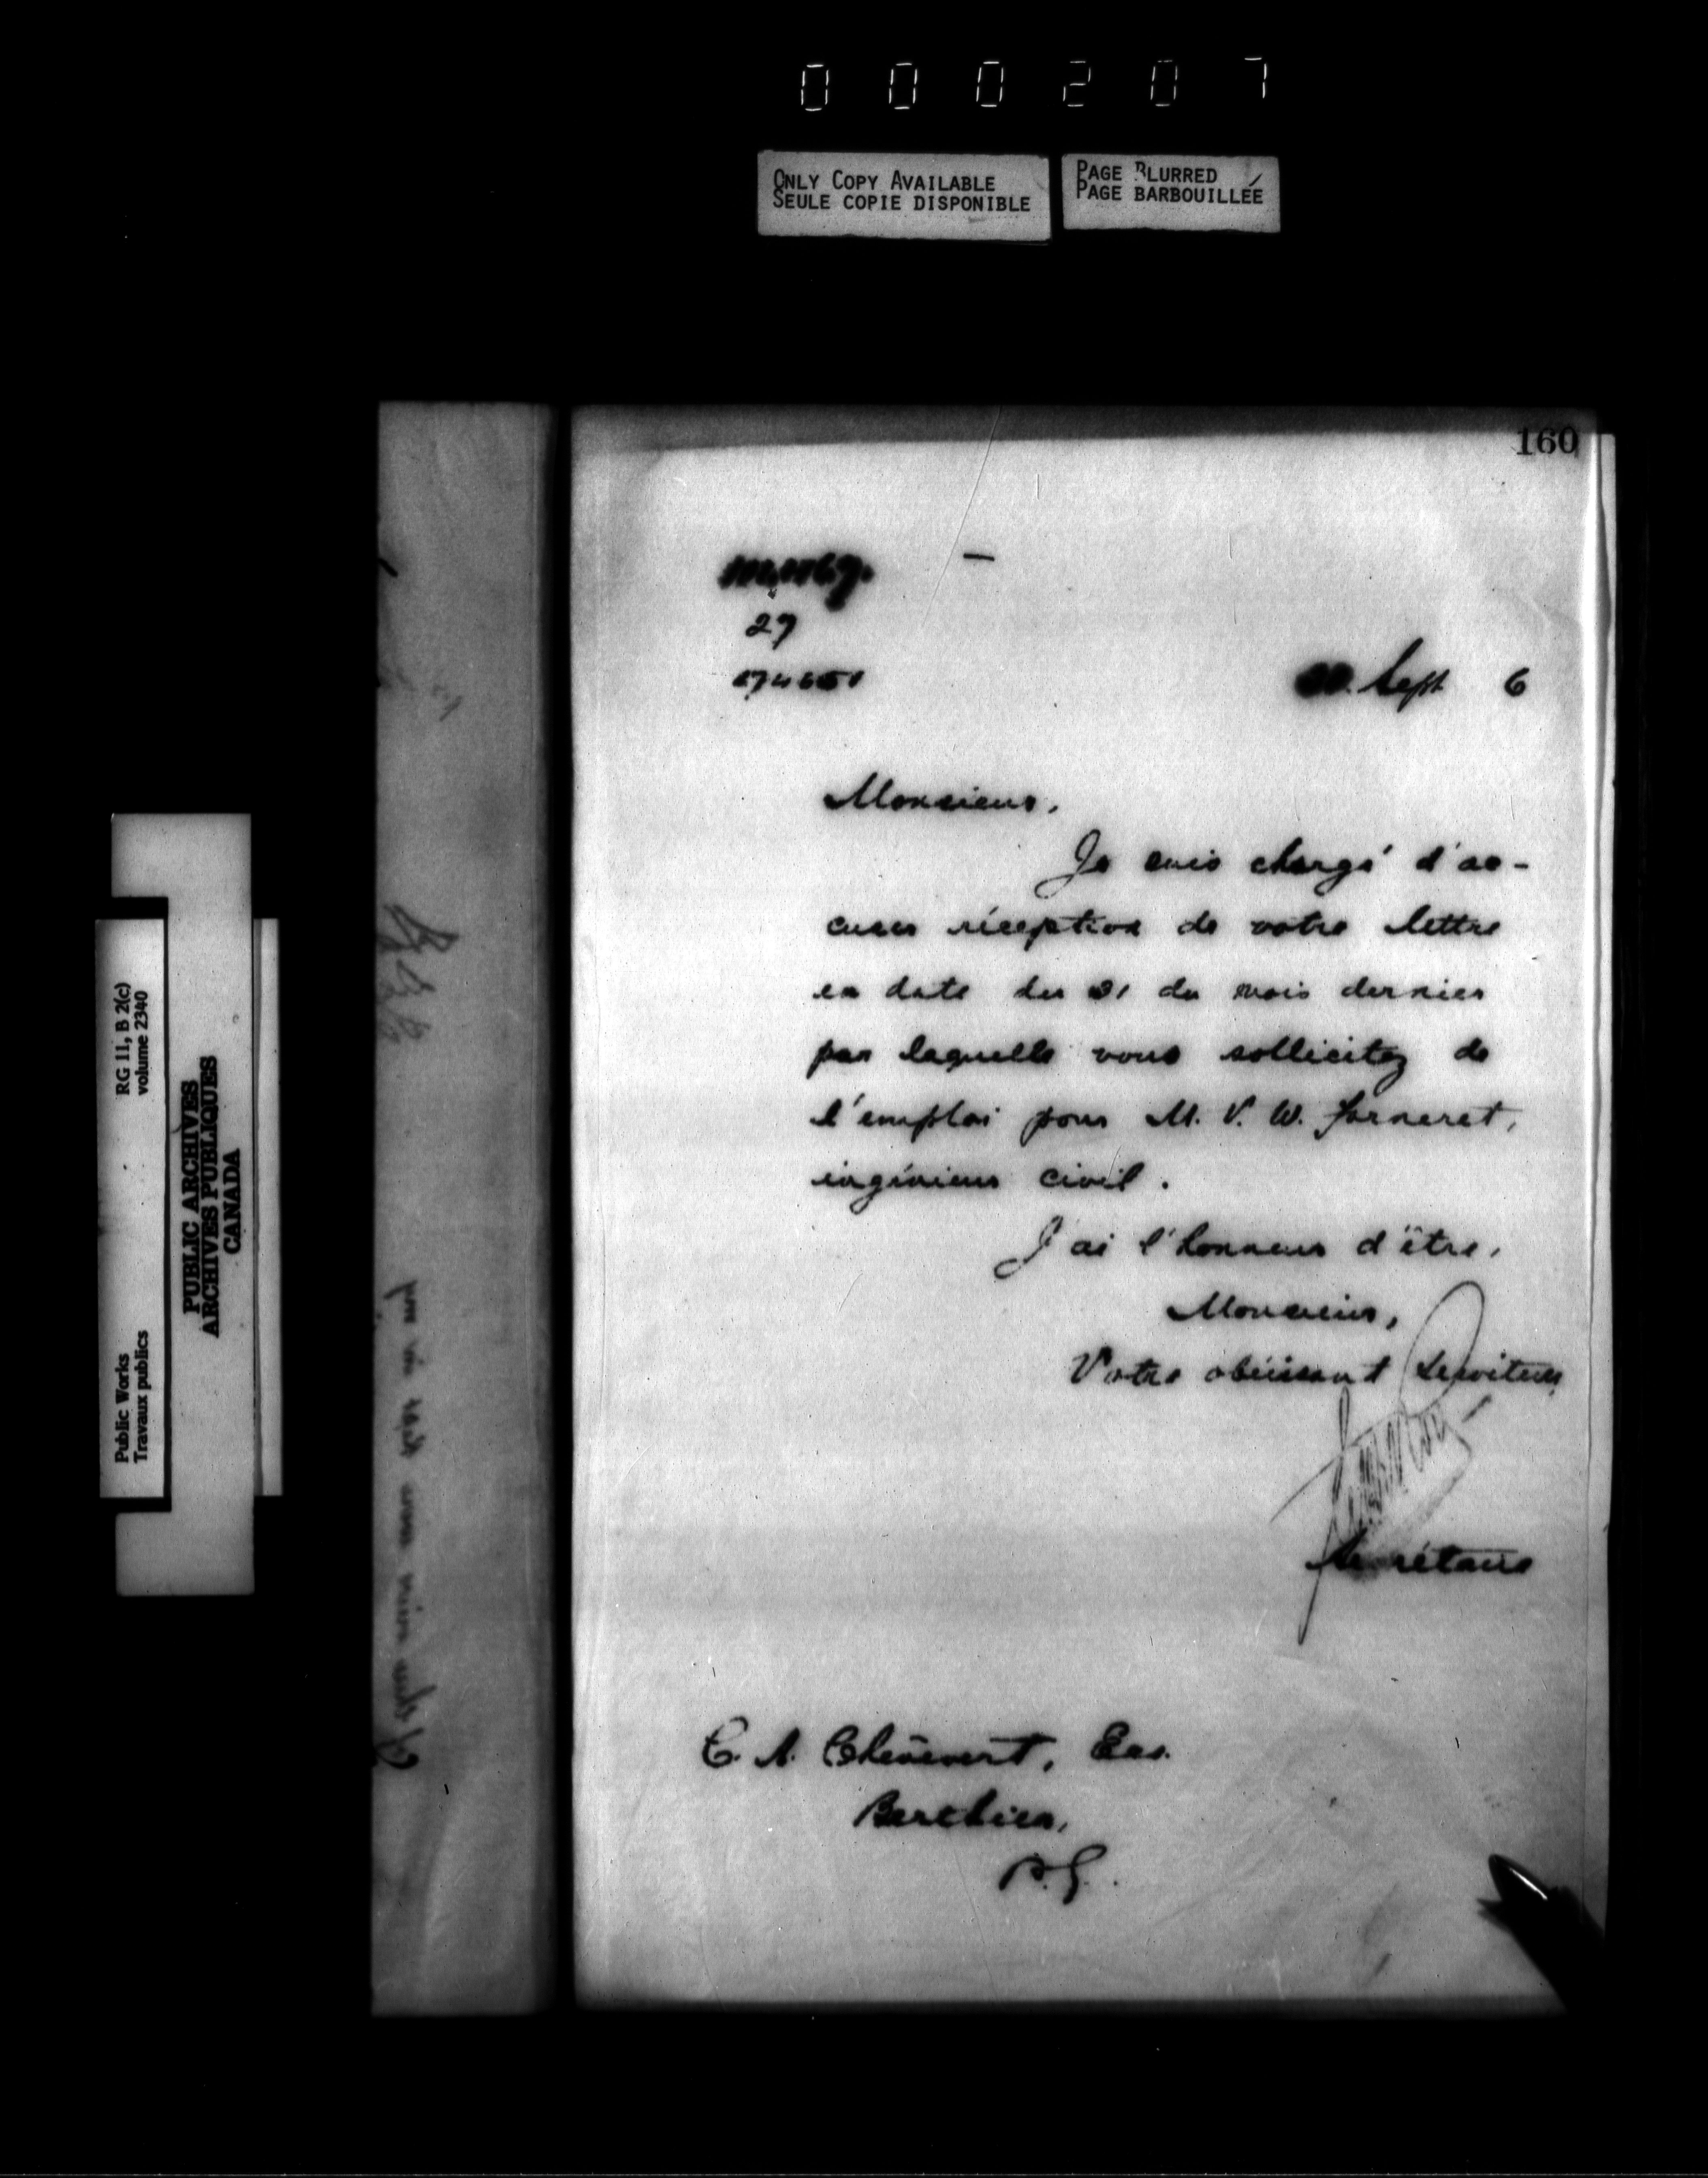 000207
ONLY COPY AVAILABLE
SEULE COPIE DISPONIBLE
PAGE BLURRED
PAGE BARBOUILLÉE
160
27
Sept 6
Monsieur,
Je suis chargé d'ac-
cuser réception de votre lettre
en date du 31 du mois dernier
par laquelle vous sollicitez de
l'emploi pour M. V. W. Forneret,
ingénieur civil.
J'ai l'honneur d'être,
Monsieur,
Votre obéissant Serviteur,
Secrétaire
C. A. Chênevert, Ecr.
Berthier,
P.Q.
RG 11, B 2(c)
volume 2340
Public Works
Travaux publics
PUBLIC ARCHIVES
ARCHIVES PUBLIQUES
CANADA